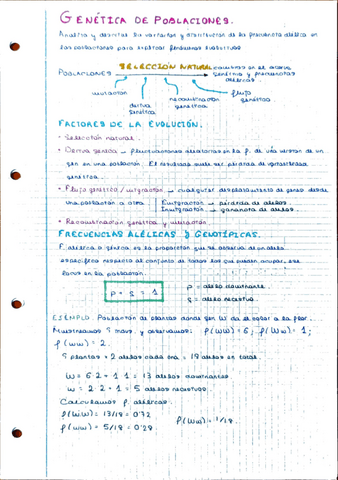 GENÉTICA DE POBLACIONES.
Analiza y describe la variación y distribución de la frecuencia alélica en
las poblaciones para explicar fenómenos evolutivos
SELECCIÓN NATURAL
POBLACIONES cambios en el acervo
genético y frecuencias
alélicas.
mutación
deriva
genética
recombinación
genética.
flujo
genético.
FACTORES DE LA EVOLUCIÓN.
- Selección natural.
- Deriva genética → fluctuaciones aleatorias en la f. de una versión de un
gen en una población. El resultado suele ser pérdida de variabilidad
genética.
- Flujo genético / migración → cualquier desplazamiento de genes desde
una población a otra. Emigración → pérdida de alelos.
Inmigración → ganancia de alelos.
- Recombinación genética y mutación.
FRECUENCIAS ALÉLICAS Y GENOTÍPICAS.
F. alélica o génica es la proporción que se observa de un alelo
específico respecto al conjunto de todos los que pueden ocupar ese
locus en la población.
p + q = 1
p = alelo dominante.
q = alelo recesivo.
EJEMPLO. Población de plantas donde gen W da el color a la flor.
Muestreamos 9 indv. y observamos: f(WW) = 6; f(Ww) = 1;
f(ww) = 2.
9 plantas × 2 alelos cada una = 18 alelos en total.
W = 6·2 + 1·1 = 13 alelos dominantes.
w = 2·2 + 1·1 = 5 alelos recesivos.
Calculamos f. alélicas:
f(WW) = 13/18 = 0'72
f(ww) = 5/18 = 0'28
f(Ww) = 1/18.